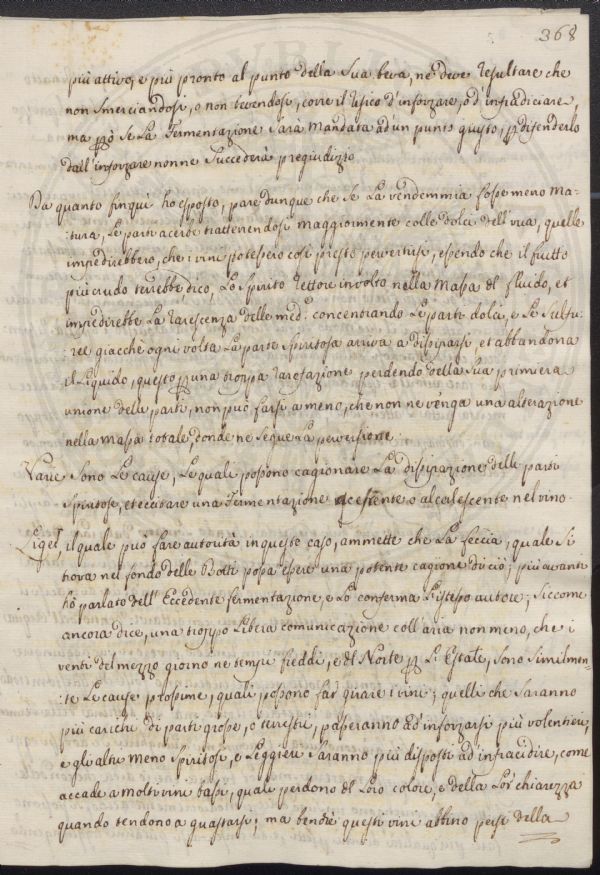 368
più attivo, e più pronto al punto della Sua beva, ne deve resultare che
non Smerciandosi, o non bevendosi, corre il risico d'inforzare, o d'infradiciare,
ma però Se La Fermentazione Sarà Mandata ad'un punto giusto, p difenderlo
dall'inforzare non ne Succederà pregiudizio
Da quanto finquì ho esposto, pare dunque che Se La vendemmia fosse meno Ma=
:tura, Le parti acerbe trattenendosi Maggiormente colle dolci dell'uva, quelle
impedirebbero, che i vini potessero così presto pervertirsi, essendo che il frutto
più crudo terrebbe, dico, Lo Spirito rettore involto nella Massa del fluido, et
impedirebbe La rarescenza delle med.e concentrando Le parti dolci, e Le Sulfu:
:ree giacchè ogni volta La parte Spiritosa arriva a dissiparsi, et abbandona
il Liquido, questo p una troppa rarefazione perdendo della Sua primiera
unione delle parti, non può farsi a meno, che non ne venga una alterazione
nella Massa totale, donde ne Segue La perversione.
Varie Sono Le cause, Le quali possono cagionare La dissipazione delle parti
Spiritose, et eccitare una Fermentazione acescente o alcalescente nel vino.
Liger il quale può fare autorità in queste caso, ammette che La feccia, quale Si
trova nel fondo delle Botti possa essere una potente cagione di ciò; più avanti
hò parlato dell'Eccedente fermentazione, e Lo conferma L'istesso autore; Siccome
ancora dice, una troppo Libera comunicazione coll'aria non meno, che i
venti del mezzo giorno ne tempi freddi, e del Norte p L'Estate, Sono Similmen=
:te Le cause prossime, quali possono far girare i vini; quelli che Saranno
più carichi di parti grosse, o terrestri, passeranno ad'inforzarsi più volentieri,
e gli altri meno Spiritosi, e Leggieri Saranno più disposti ad'infracidire, come
accade a molti vini bassi, quali perdono del Loro colore, e della Lor' chiarezza
quando tendono a guastarsi; ma bendiè questi vini abbino persi della